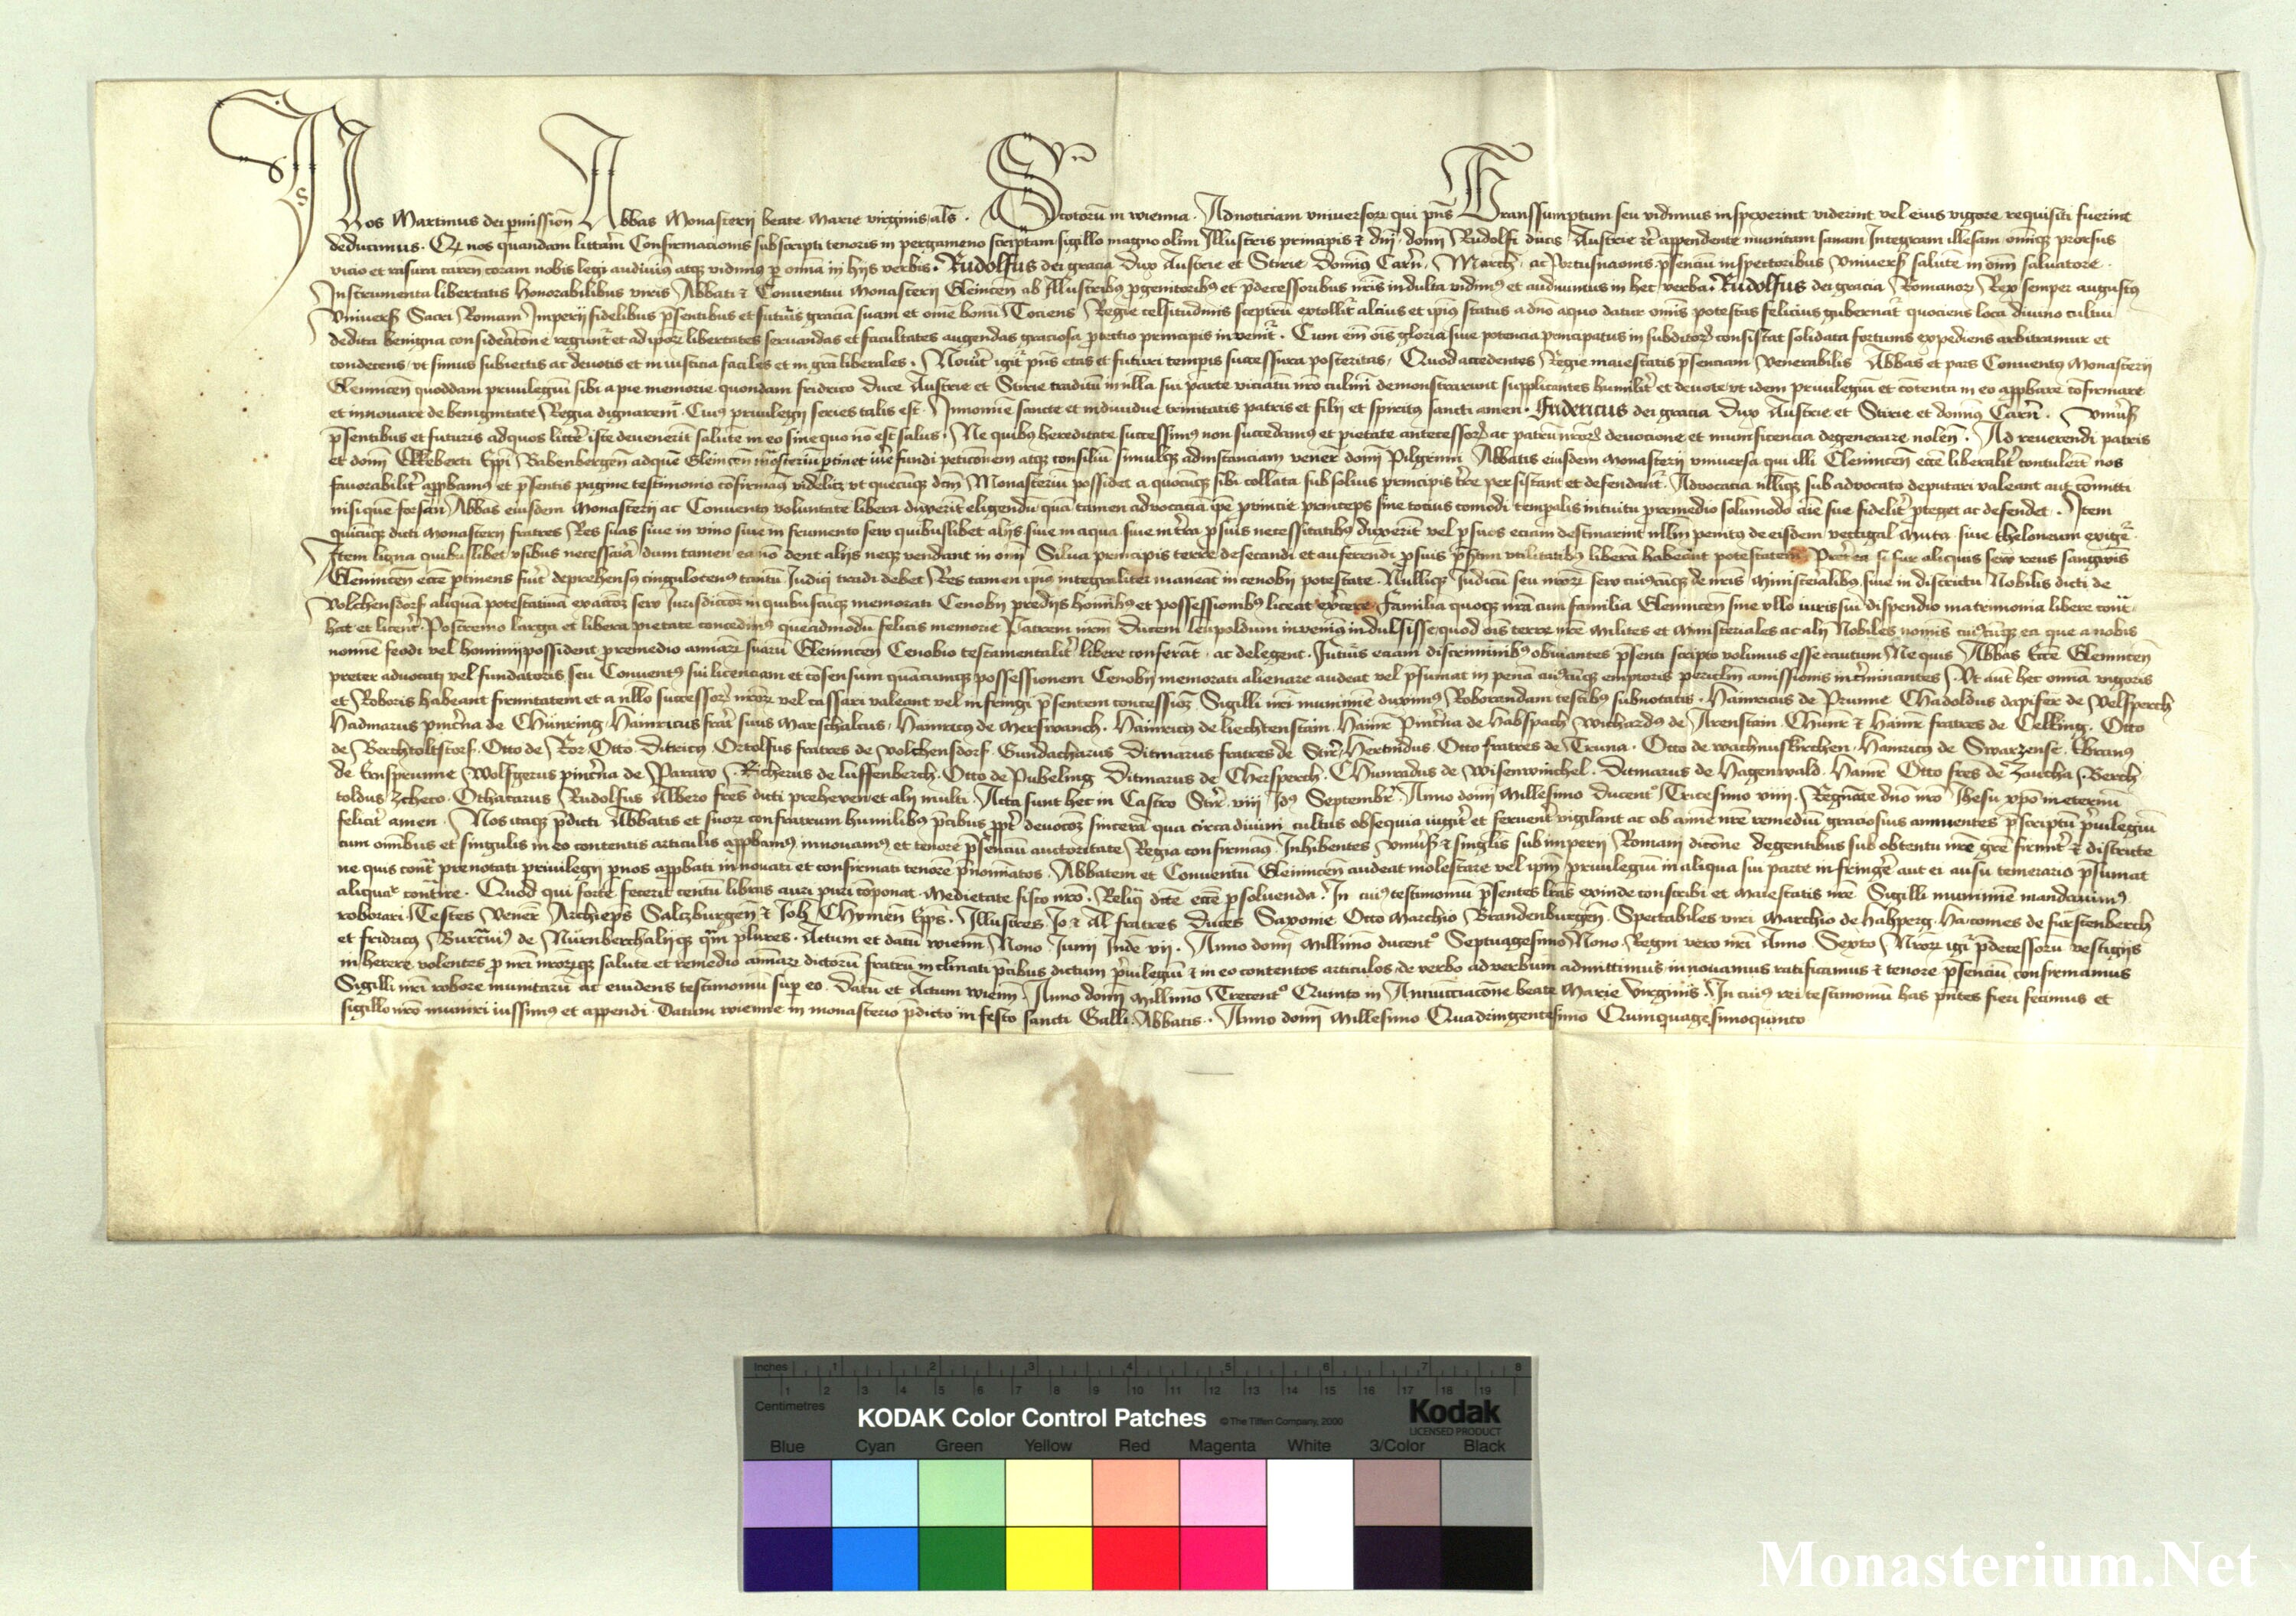 Nos Martinus dei p̄missiōn Abbas Monasterij beate Marie virginis, al̄s · Scotorū in wienna · Ad noticiam vniversoꝝ qui pn̄s Transsumptum seu vidimus inspexerint viderint vel eius vigore requisiti fuerint
deducimus · Qꝫ nos quandam litteram Confirmacionis subscripti tenoris in pergameno scriptam sigillo magno olim Illustris principis & dn̄j · domī Rudolfi ducis Austrie ꝛc̄ appendente munitam sanam Integram illesam om̄iqꝫ prorsus
vicio et rasura carēn coram nobis legi audiuimꝰ atqꝫ vidimꝰ ꝑ om̄ia in hijs verbis · Rudolfus dei gracia Dux Austrie et Stirie Domīnꝰ Carn̄ · March · ac Portusnaonis · p̄senciū inspectoribus Vniuers̄ salutē in om̄i saluatore ·
Instrumenta libertatis Honorabilibus viris Abbati & Conuentui Monasterij Gleincen̄ ab Illustribꝰ ꝓgenitoribꝰ et p̄decessoribus nr̄is indulta vidimꝰ et audiuimus in hec verba · Rudolfus dei gracia Romanoꝝ Rex semper augustꝰ
Vniuers̄ Sacri Romani Imperij fidelibus p̄sentibus et futuris graciā suam et om̄e bonū Tociens Regie celsitudinis sceptrū extollit̄ alcius et ip̄iꝰ status a dn̄o a quo datur om̄is potestas felicius gubernat̄ quociens loca diuino cultui
dedita benigna consideracōne regunt̄ et ad ip̄oꝝ libertates seruandas et facultates augendas graciosa ꝓtectio principis inuenit̄ · Cum em̄ om̄s gloria siue potencia principatus in subditoꝝ consistat solidata fortunis expediens arbitramur et
condecens vt simus subiectis ac deuotis et in iusticia faciles et in gr̄a liberales · Nouit̄ igit̄ pn̄s etas et futuri temp̄is successura posteritas, Quod accedentes Regie maiestatis p̄senciam Venerabilis Abbas et pars Conuentꝰ Monasterij
Glenincen̄ quoddam priuilegiū sibi a pie memorie quondam fridrico Duce Austrie et Stirie traditū in nlla sui parte viciatū nr̄o culmi demonstrarunt supplicantes humilit̄ et deuote vt idem priuilegiū et cōtenta in eo app̄bare cōfirmare
et innouare de benignitate Regia dignarem̄ · Cuiꝰ priuilegij series talis est · In nomīe sancte et indiuidue trinitatis patris et filij et spiritꝰ sancti amen · Fridericus dei gracia Dux Austrie et Stirie et domīnꝰ Carn̄ · Vniuers̄
p̄sentibus et futuris ad quos litter̄ iste deuenerīt salutē in eo sine quo nō est salus · Ne quibꝰ hereditate successimꝰ non succedamꝰ et pietate antecessoꝝ ac patrū nr̄oꝝ deuocione et munificencia degenerare nolen̄ · Ad reuerendi patris
et domī Ekkeberti Ep̄i Babenbergen̄ ad quē Gleincen̄ monasteriū ꝑtinet iur̄e fundi peticōnem atqꝫ consiliū simulqꝫ ad instanciam vener̄ domī Pilgrimi Abbatis eiusdem monasterij vniuersa qui illi Clenincen̄ eccē liberalit̄ contulerīt nos
fauorabilit̄ app̄bamꝰ et p̄sentis pagine testimonio cōfirmamꝰ videlicꝫ vt quecūqꝫ dcm̄ Monasteriū possidet a quocūqꝫ sibi collata sub solius principis tr̄e persistant et defendant̄ · Advocacia nlliqꝫ sub advocato deputari valeant aut cōmitti
nisi quē forsan Abbas eiusdem Monasterij ac Conuentꝰ voluntate libera duxerīt eligendū quā tamen advocaciā ip̄e prīncie princeps sine tocius comodi temp̄alis intuitu p̄ remedio solūmodo aīe sue fidelit̄ ꝓteget ac defendet · Item
quicūqꝫ dicti Monasterij fratres Res suas siue in vino siue in frumento sew quibuslibet alijs siue in aqua siue in tr̄a ꝓ suis necessitatibꝰ duxerīt vel ꝓ suos eciam destinarīnt nllm̄ penitꝰ de eisdem vectigal Muta · siue theloneum exiget̄ ·
Item ligna quibuslibet vsibus necessaria dum tamen ea nō dent alijs neqꝫ vendant in om̄j Silua principis terre desecandi et auferendi ꝓ suis vtilitatibꝰ liberā habeant potestatem · Preter̄ea si fur aliquis sew reus sangwis
Glenincen̄ eccē ꝑtinens fuīt deprehensꝰ cingulotenꝰ tantū Iudicj tradi debet Res tamen ipsiꝰ integraliter maneāt in cenobij potestate · Nulliqꝫ Iudicū seu nr̄oꝝ sew cuiuscūqꝫ de nr̄is Ministerialibꝰ siue in districtu Nobilis dicti de
Volchensdorf aliquā potestatiuā exaccōꝫ sew Iurisdiccōꝫ in quibuscūqꝫ memorati Cenobij predijs hominibꝰ et possessionibꝰ liceat exercere Familia quoqꝫ nr̄a cum familia Glenincen̄ sine vllo iuris sui dispendio matrimonia libere contͣ-
hat et licent̄ · Postremo larga et libera pietate concedimꝰ queadmodū felicis memorie Patrem nr̄m Ducem leupoldum inuenimꝰ indulsisse quod om̄s terre nr̄e Milites et Ministeriales ac alij Nobiles nomīs cuiꝰcūqꝫ ea que a nobis
nomīe feodi vel hominij possident ꝓ remedio animaꝝ suarū Glenincen̄ Cenobio testamentalit̄ libere conferāt · ac delegent · Futuris eciam discriminibꝰ obuiantes p̄senti scripto volumus esse cautum Ne quis Abbas Eccē Glenincen̄
preter advocati vel fundatoris seu Conuentꝰ sui licenciam et cōsensum quācumqꝫ possessionem Cenobij memorati alienare audeat vel p̄sumat in penā cuiꝰcūqꝫ emptoris periclm̄ amissionis in tͥminantes · Vt aut̄ hec om̄ia vigoris
et Roboris habeant firmitatem et a nllo successoꝝ nr̄oꝝ vel cassari valeant vel infringi p̄sentem concessioꝫ Sigilli nr̄i munimīe duximꝰ Roborandam testibꝰ subnotatis · Hainricus de Prunne Chadoldus dapifer de Velsperch
Hadmarus pincͥna de Chünring · Hainricus frat̄ suus Marschalcus, Hainricꝰ de Merswanch · Hainricꝰ de liechtenstain, Hainr̄ Pincͥna de Habspach Wichardus de Arenstain · Chunr̄ & Hainr̄ fratres de Celking · Otto
de Berchtoltstorf · Otto de Ror Otto · Ditricꝰ Ortolfus fratres de Volchensdorf · Gundacharus Ditmarus fratres de Stir̄ Hertindus · Otto fratres de Truna · Otto de wachnuskirchen · Hainricꝰ de Swarzense · Ebranꝰ
de Ernsprunne Wolfgerus pincͥna de Paraw · Richerus de lussenberch · Otto de Pubeling Ditmarus de Chersperch · Chunradus de Wisenwinchel · Ditmarus de Hagenwald · Hainr̄ Otto fr̄es de Zaucha · Berch-
toldus Zcheco · Othacarus Rudolfus Albero fr̄es dicti preheven et alij multi · Acta sunt hec in Castro Stir̄ · viij Idꝰ Septembr̄ · Anno domī Millesimo Ducentͦ Tricesimo viiij · Regnāte dn̄o nr̄o Ihesu xp̄o in eternū
felicit̄ amen · Nos itaqꝫ p̄dicti Abbatis et suoꝝ confratrum humilibꝰ p̄cibus ꝓpt̄ deuocōꝫ sincerā qua circa diuini cultus obsequia iugit̄ et feruent̄ vigilant ac ob anime nr̄e remediū graciosius annuentes p̄scriptū p̄uilegiū
cum omībus et singulis in eo contentis articulis app̄bamꝰ innouamꝰ et tenore p̄senciū auctoritate Regia confirmamꝰ Inhibentes vniuers̄ & singlis sub imperij Romani dicōne degentibus sub obtentu nr̄e gr̄e firmit̄ & districte
ne quis contͣ prenotati priuilegij p̄ nos app̄bati innouati et confirmati tenorē p̄nominatos · Abbatem et Conuentū Gleincen̄ audeat molestare vel ip̄m priuilegiū in aliqua sui parte infringere aut ei ausu temerario p̄sumat
aliquat̄ contͣire · Quod qui forte fecerit centū libras auri puri cōponat · Medietate fisco nr̄o · Reliqͣ dicte eccē ꝑsoluenda · In cuiꝰ testimoniū p̄sentes lr̄as exinde conscribi et maiestatis nr̄e Sigilli munimīe mandauimꝰ
roborari · Testes Vener̄ Archiep̄s Saltzburgen̄ & Ioh̄ Chymen̄ Ep̄s · Illustres Io & Al̄ fratres Duces Saxonie Otto Marchio Brandenburgen̄ · Spectabiles viri Marchio de Hahperg · Ha · comes de fürstenberch
et fridricꝰ Burcrauiꝰ de Nürnberch alijqꝫ qͣm plures · Actum et datū wienn̄ Nono Iunij Indc̄ vij · Anno domī Millīmo ducentͦ Septuagesimo Nono · Regni vero nr̄i Anno Sexto Nr̄oꝝ igit̄ p̄decessorū vestigijs
inherere volentes ꝓ nr̄i nr̄oꝝqꝫ salute et remedio animaꝝ dictorū fratrū inclinati p̄cibus dictum p̄uilegiū & in eo contentos articulos de verbo ad verbum admittimus innouamus ratificamus & tenore p̄senciū confirmamus
Sigilli nr̄i robore munitarū ac euidens testimoniū suꝑ eo · Datū et Actum wienn̄ · Anno domī Millīmo Trecentͦ Quinto in Annūcciacōne beate Marie Virginis · In cuiꝰ rei testimoniū has pn̄tes fieri fecimus et
sigillo nr̄o muniri iussimꝰ et appendi · Datum wienne in monasterio p̄dicto in festo sancti Galli Abbatis · Anno domī Millesimo Quadringentesimo Quinquagesimoquinto
Inches 1 2 3 4 5 6 7 8
1 2 3 4 5 6 7 8 9 10 11 12 13 14 15 16 17 18 19
Centimetres
KODAK Color Control Patches © The Tiffen Company, 2000 Kodak
LICENSED PRODUCT
Blue Cyan Green Yellow Red Magenta White 3/Color Black
Monasterium.Net